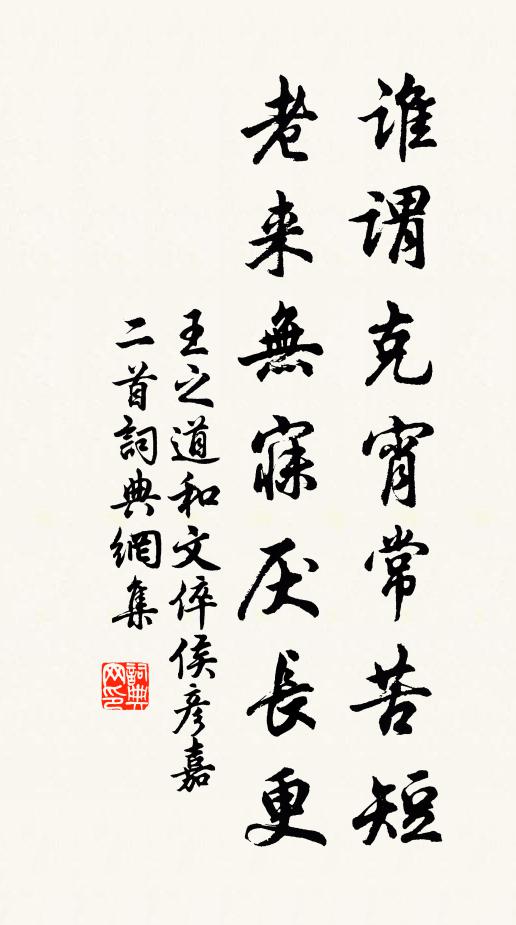 谁謂克宵常苦短
老来無寐厌長更
王之道和文倅侯彦嘉
二首詞典網集
詞典网印